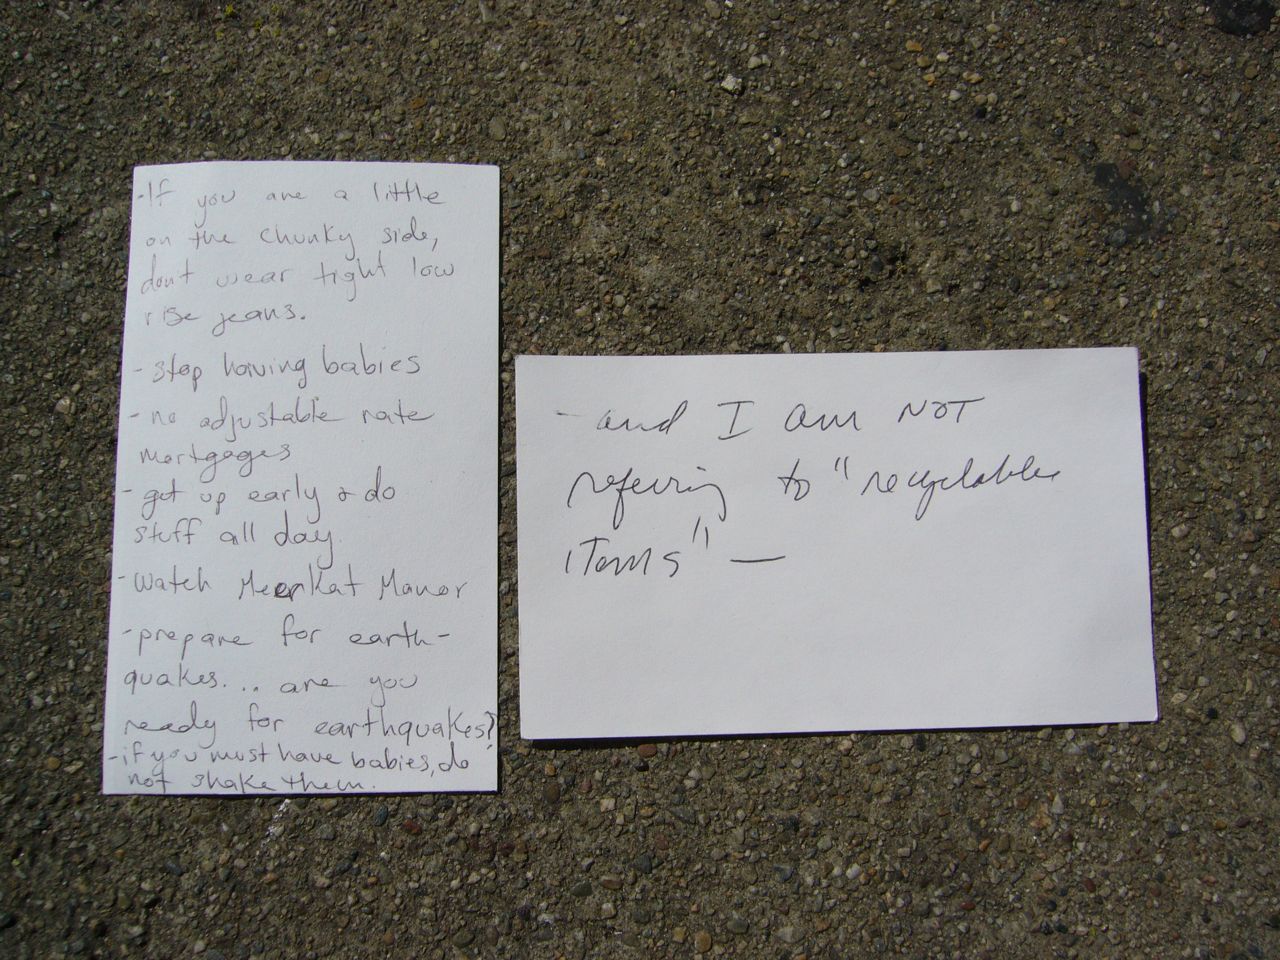 -If you are a little
on the chunky side,
don't wear tight low
rise jeans.
- stop having babies
- no adjustable rate
mortgages
- get up early & do
stuff all day.
- watch Meerkat Manor
- prepare for earth-
quakes... are you
ready for earthquakes?
- if you must have babies, do
not shake them.
- and I am NOT
referring to "recyclable
items" —